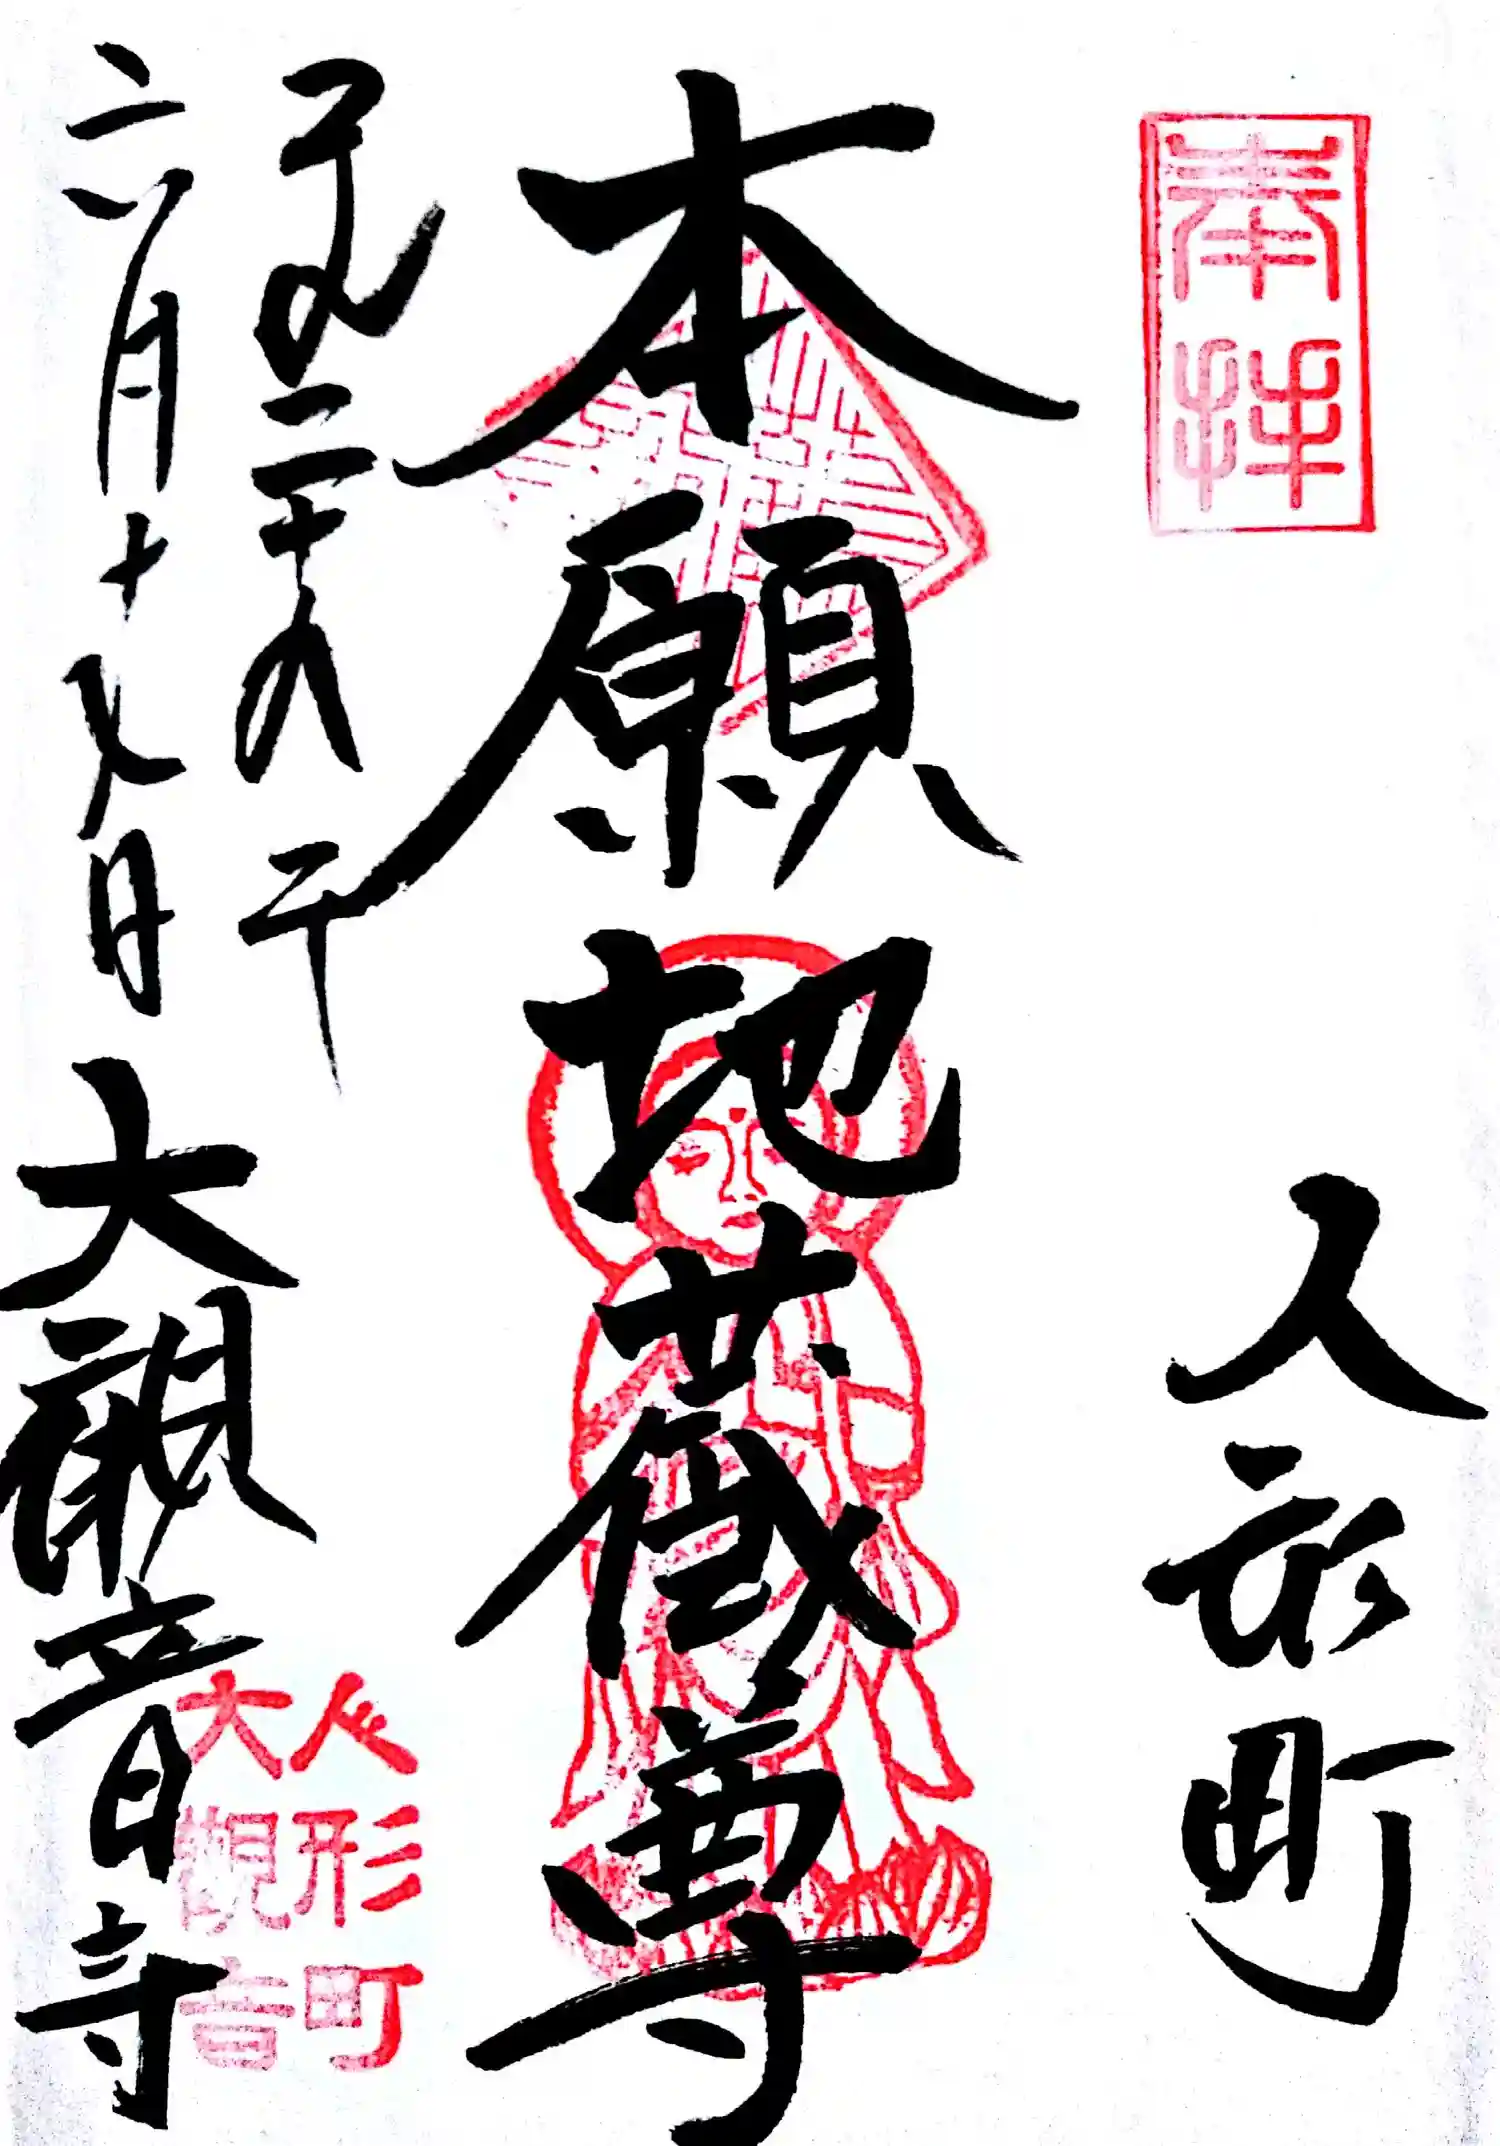 奉拝
人形町
本願地蔵尊
平成二十八年
六月十七日
大觀音寺
人形町
大觀音